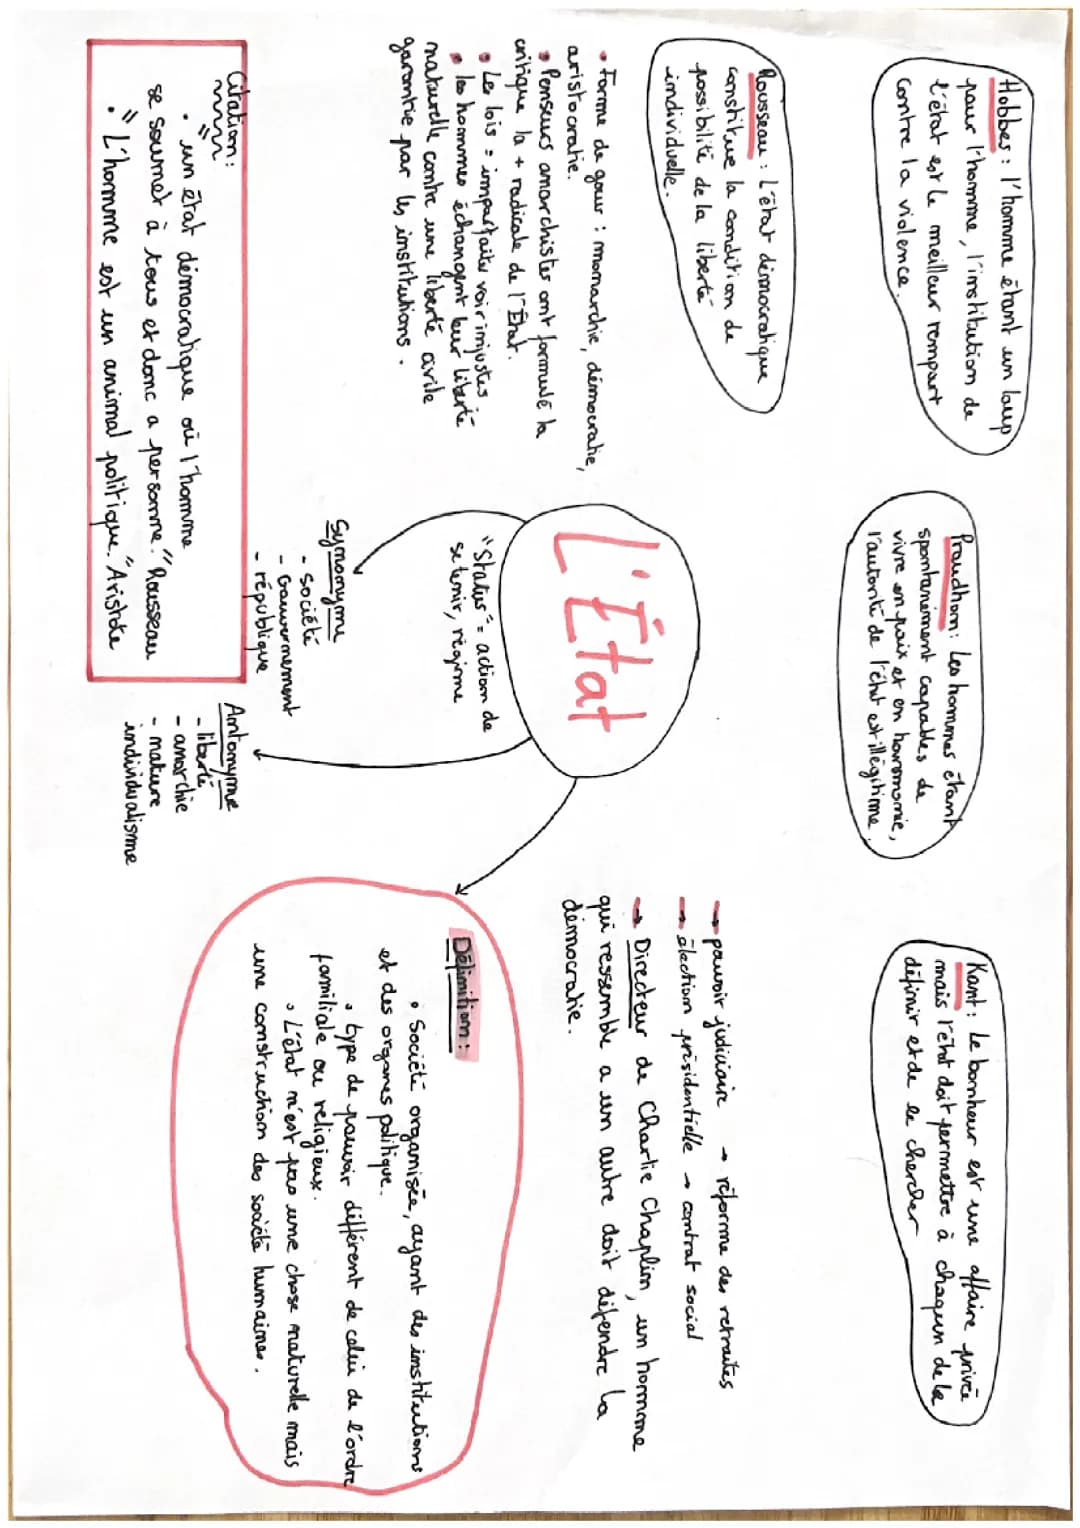 Hobbes : l'homme étant un loup
pour l'homme, l'institution de
l'état est le meilleur rempart
contre la violence.
Proudhon : Les hommes étant
spontanément capables de
vivre en paix et en harmonie,
l'autorité de l'état est illégitime.
Kant : Le bonheur est une affaire privée
mais l'état doit permettre à chaqun de le
définir et de le chercher
Rousseau : L'état démocratique
constitue la condition de
possibilité de la liberté
individuelle.
• Forme de gouv : monarchie, démocratie,
aristocratie.
• Penseurs anarchistes ont formulé la
critique la + radicale de l'État.
• Les lois = imparfaites voir injustes
• les hommes échangent leur liberté
naturelle contre une liberté civile
garantie par les institutions.
L'État
"Status" = action de
se tenir, régime
→ pouvoir judiciaire → réforme des retraites
→ élection présidentielle → contrat social
→ Directeur de Charlie Chaplin, un homme
qui ressemble a un autre doit défendre la
démocratie.
Synonyme
- société
- Gouvernement
- république
Antonyme
- liberté
- anarchie
- nature
individualisme
Définition :
• Société organisée, ayant des institutions
et des organes politique.
• type de pouvoir différent de celui de l'ordre
familiale ou religieux.
• L'état n'est pas une chose naturelle mais
une construction des société humaines.
Citation :
• "un état démocratique où l'homme
se soumet à tous et donc a personne." Rousseau
• "L'homme est un animal politique." Aristote